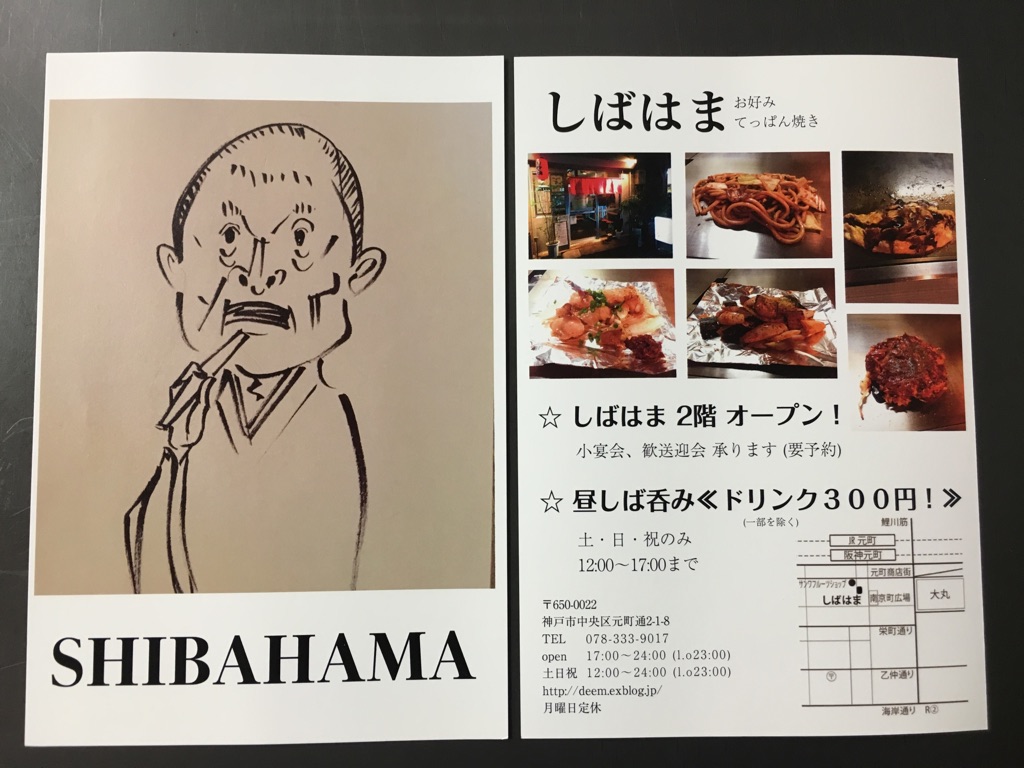 SHIBAHAMA
しばはま
お好み
てっぱん焼き
☆ しばはま 2階 オープン！
小宴会、歓送迎会 承ります (要予約)
☆ 昼しば呑み≪ドリンク３００円！≫
(一部を除く)
土・日・祝のみ
12:00〜17:00まで
〒650-0022
神戸市中央区元町通2-1-8
TEL 078-333-9017
open 17:00〜24:00 (l.o23:00)
土日祝 12:00〜24:00 (l.o23:00)
http://deem.exblog.jp/
月曜日定休
鯉川筋
JR 元町
阪神元町
元町商店街
サンワフルーツショップ
しばはま
南京町広場
大丸
栄町通り
乙仲通り
〒
海岸通り R②